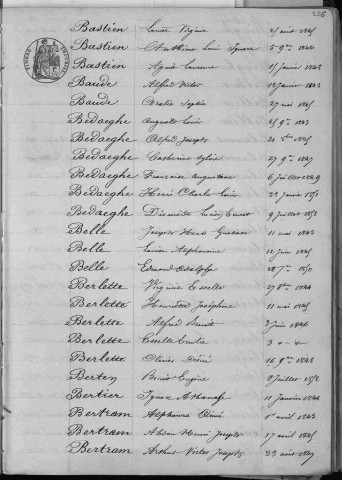 236
Bastien Louise Virginie 25 août 1845
Bastien Cantine Louis Ignace 5 9bre 1846
Bastien Agnès Laurence 15 Janvier 1848
Baude Alfred Victor 12 Janvier 1843
Baude Coralie Sophie 27 mai 1845
Bedaeghe Auguste Louis 25 9bre 1843
Bedaeghe Alfred Joseph 20 1845
Bedaeghe Catherine Sylvie 27 9bre 1847
Bedaeghe Françoise Augustine 6 Juillet 1849
Bedaeghe Henri Charles Louis 22 Janvier 1851
Bedaeghe Diomède Louis 9 Juillet 1852
Belle Joseph Gustave 11 mai 1843
Belle Louise Alphonsine 12 Juin 1845
Belle Edmond Adolphe 28 7bre 1850
Berlette Virginie 27 8bre 1844
Berlette Henriette Joséphine 11 mai 1845
Berlette Alfred Benoit 3 Juin 1846
Berlette 3
Berlette Olivier Désiré 16 9bre 1848
Berten Benoit Eugène 8 Juillet 1852
Bertier Ignace Athanase 11 Janvier 1844
Bertram Alphonse Aimé 1er avril 1843
Bertram Abdon Henri Joseph 17 avril 1845
Bertram Arthur Victor Joseph 23 août 1849